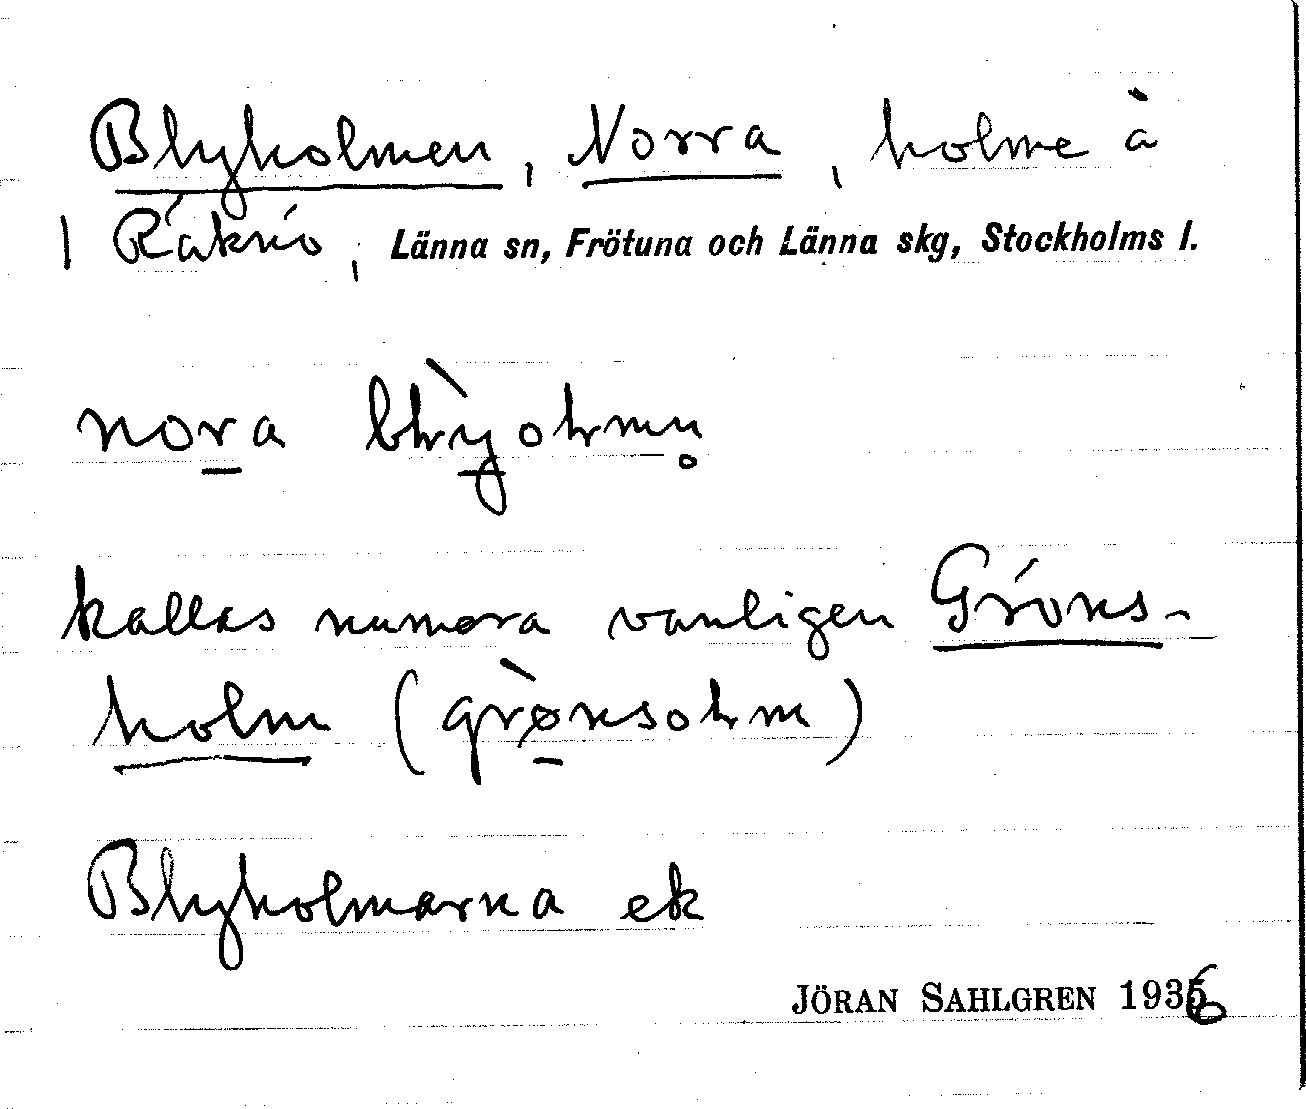 Blyholmen, Norra, holme å
| Räksiö, Länna sn, Frötuna och Länna skg, Stockholms l.
nora blỳoɫmn̥
kallas numera vanligen Gröns-
holm (grø̀nsoɫm)
Blyholmarna ek
JÖRAN SAHLGREN 1936